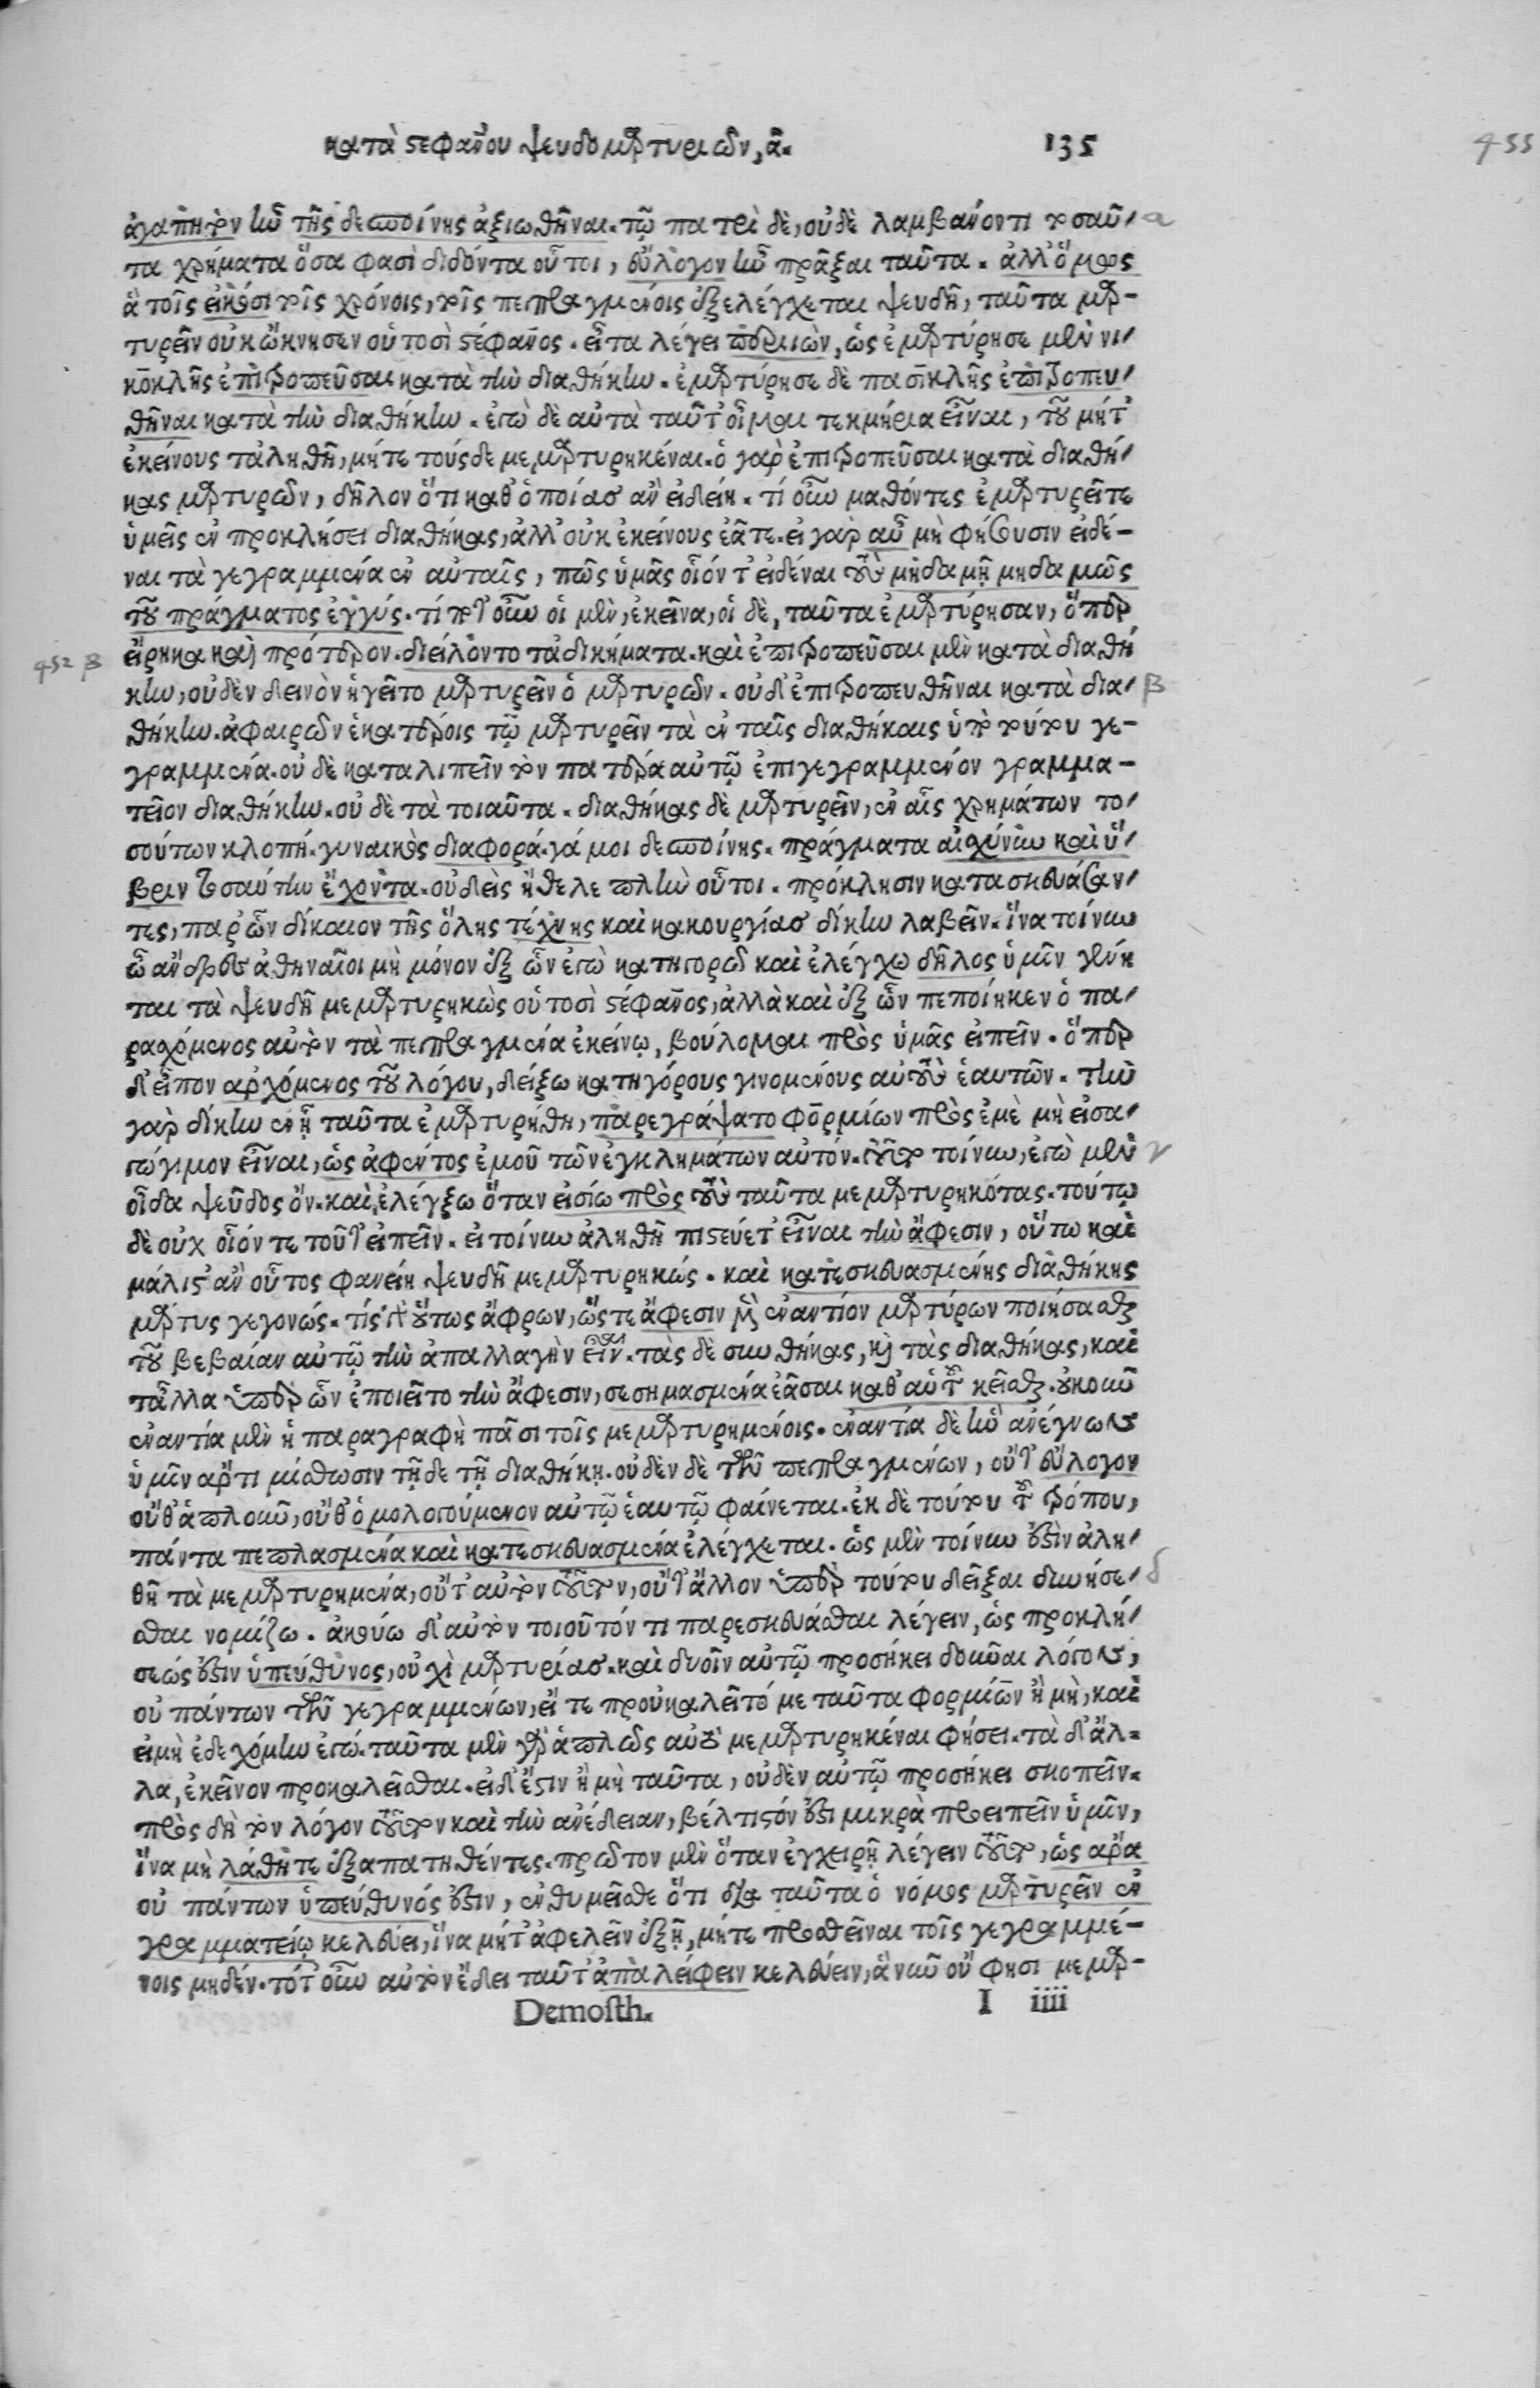 κατὰ στεφάνου ψευδομαρτυριῶν, α. 135
455
ἀγαπητὸν ἦν τῆς δεσποίνης ἀξιωθῆναι. τῷ πατρὶ δὲ, οὐδὲ λαμβάνοντι τοσαῦ- α
τα χρήματα ὅσα φασὶ διδόντα οὗτοι, εὔλογον ἦν πρᾶξαι ταῦτα. ἀλλ' ὅμως
ἃ τοῖς εἰκόσι τοῖς χρόνοις, τοῖς πεπραγμένοις ἐξελέγχεται ψευδῆ, ταῦτα μαρ-
τυρεῖν οὐκ ὤκνησεν οὑτοσὶ στέφανος. εἶτα λέγει περιιὼν, ὡς ἐμαρτύρησε μὲν νι-
κοκλῆς ἐπιτροπεῦσαι κατὰ τὴν διαθήκην. ἐμαρτύρησε δὲ πασικλῆς ἐπιτροπευ-
θῆναι κατὰ τὴν διαθήκην. ἐγὼ δὲ αὐτὰ ταῦτ' οἶμαι τεκμήρια εἶναι, τοῦ μήτ'
ἐκείνους τἀληθῆ, μήτε τούσδε μεμαρτυρηκέναι. ὁ γὰρ ἐπιτροπεῦσαι κατὰ διαθή-
κας μαρτυρῶν, δῆλον ὅτι καθ' ὁποίας ἂν εἰδείη. τί οὖν μαθόντες ἐμαρτυρεῖτε
ὑμεῖς ἐν προκλήσει διαθήκας, ἀλλ' οὐκ ἐκείνους ἐᾶτε. εἰ γὰρ αὖ μὴ φήσουσιν εἰδέ-
ναι τὰ γεγραμμένα ἐν αὐταῖς, πῶς ὑμᾶς οἷόν τ' εἰδέναι τοὺς μηδαμῇ μηδαμῶς
τοῦ πράγματος ἐγγύς. τί ποτ' οὖν οἱ μὲν, ἐκεῖνα, οἱ δὲ, ταῦτα ἐμαρτύρησαν, ὅπερ
452 β εἴρηκα καὶ πρότερον. διείλοντο τἀδικήματα. καὶ ἐπιτροπεῦσαι μὲν κατὰ διαθή
κην, οὐδὲν δεινὸν ἡγεῖτο μαρτυρεῖν ὁ μαρτυρῶν. οὐδ' ἐπιτροπευθῆναι κατὰ δια- β
θήκην. ἀφαιρῶν ἑκατέροις τῷ μαρτυρεῖν τὰ ἐν ταῖς διαθήκαις ὑπὸ τούτου γε-
γραμμένα. οὐδὲ καταλιπεῖν τὸν πατέρα αὐτῷ ἐπιγεγραμμένον γραμμα-
τεῖον διαθήκην. οὐδὲ τὰ τοιαῦτα. διαθήκας δὲ μαρτυρεῖν, ἐν αἷς χρημάτων το-
σούτων κλοπή. γυναικὸς διαφορά. γάμοι δεσποίνης. πράγματα αἰσχύνην καὶ ὕ-
βριν τοσαύτην ἔχοντα. οὐδεὶς ἤθελε πλὴν οὗτοι. πρόκλησιν κατασκευάσαν-
τες, παρ' ὧν δίκαιον τῆς ὅλης τέχνης καὶ κακουργίας δίκην λαβεῖν. ἵνα τοίνυν
ὦ ἄνδρες ἀθηναῖοι μὴ μόνον ἐξ ὧν ἐγὼ κατηγορῶ καὶ ἐλέγχω δῆλος ὑμῖν γένη
ται τὰ ψευδῆ μεμαρτυρηκὼς οὑτοσὶ στέφανος, ἀλλὰ καὶ ἐξ ὧν πεποίηκεν ὁ πα-
ρασχόμενος αὐτὸν τὰ πεπραγμένα ἐκείνῳ, βούλομαι πρὸς ὑμᾶς εἰπεῖν. ὅπερ
δ' εἶπον ἀρχόμενος τοῦ λόγου, δείξω κατηγόρους γινομένους αὐτοὺς ἑαυτῶν. τὴν
γὰρ δίκην ἐν ᾗ ταῦτα ἐμαρτυρήθη, παρεγράψατο φορμίων πρὸς ἐμὲ μὴ εἰσα-
γώγιμον εἶναι, ὡς ἀφέντος ἐμοῦ τῶν ἐγκλημάτων αὐτόν. τοῦτο τοίνυν, ἐγὼ μὲν γ
οἶδα ψεῦδος ὄν. καὶ ἐλέγξω ὅταν εἰσίω πρὸς τοὺς ταῦτα μεμαρτυρηκότας. τούτῳ
δὲ οὐχ οἷόν τε τοῦτ' εἰπεῖν. εἰ τοίνυν ἀληθῆ πιστεύετ' εἶναι τὴν ἄφεσιν, οὕτω καὶ
μάλιστ' ἂν οὗτος φανείη ψευδῆ μεμαρτυρηκώς. καὶ κατεσκευασμένης διαθήκης
μάρτυς γεγονώς. τίς γὰρ οὕτως ἄφρων, ὥστε ἄφεσιν μὲν ἐναντίον μαρτύρων ποιήσασθαι
τοῦ βεβαίαν αὐτῷ τὴν ἀπαλλαγὴν εἶναι. τὰς δὲ συνθήκας, καὶ τὰς διαθήκας, καὶ
τἆλλα ὑπὲρ ὧν ἐποιεῖτο τὴν ἄφεσιν, σεσημασμένα ἐᾶσαι καθ' αὑτοῦ κεῖσθαι. οὐκοῦν
ἐναντία μὲν ἡ παραγραφὴ πᾶσι τοῖς μεμαρτυρημένοις. ἐναντία δὲ ἣν ἀνέγνων
ὑμῖν ἄρτι μίσθωσιν τῇδε τῇ διαθήκῃ. οὐδὲν δὲ τῶν πεπραγμένων, οὔτ' εὔλογον
οὔθ' ἁπλοῦν, οὔθ' ὁμολογούμενον αὐτῷ ἑαυτῷ φαίνεται. ἐκ δὲ τούτου τοῦ τρόπου,
πάντα πεπλασμένα καὶ κατεσκευασμένα ἐλέγχεται. ὡς μὲν τοίνυν ἐστὶν ἀλη-
θῆ τὰ μεμαρτυρημένα, οὔτ' αὐτὸν τοῦτον, οὔτ' ἄλλον ὑπὲρ τούτου δεῖξαι δυνήσε- δ
σθαι νομίζω. ἀκούω δ' αὐτὸν τοιοῦτόν τι παρεσκευάσθαι λέγειν, ὡς προκλή-
σεώς ἐστιν ὑπεύθυνος, οὐχὶ μαρτυρίας. καὶ δυοῖν αὐτῷ προσήκει δοῦναι λόγον,
οὐ πάντων τῶν γεγραμμένων, εἴτε προὐκαλεῖτό με ταῦτα φορμίων ἢ μὴ, καὶ
εἰ μὴ ἐδεχόμην ἐγώ. ταῦτα μὲν γὰρ ἁπλῶς αὐτὸς μεμαρτυρηκέναι φήσει. τὰ δ' ἄλ-
λα, ἐκεῖνον προκαλεῖσθαι. εἰ δ' ἔστιν ἢ μὴ ταῦτα, οὐδὲν αὐτῷ προσήκει σκοπεῖν.
πρὸς δὴ τὸν λόγον τοῦτον καὶ τὴν ἀναίδειαν, βέλτιστόν ἐστι μικρὰ προειπεῖν ὑμῖν,
ἵνα μὴ λάθητε ἐξαπατηθέντες. πρῶτον μὲν ὅταν ἐγχειρῇ λέγειν τοῦτο, ὡς ἄρα
οὐ πάντων ὑπεύθυνός ἐστιν, ἐνθυμεῖσθε ὅτι διὰ ταῦτα ὁ νόμος μαρτυρεῖν ἐν
γραμματείῳ κελεύει, ἵνα μήτ' ἀφελεῖν ἐξῇ, μήτε προσθεῖναι τοῖς γεγραμμέ-
νοις μηδέν. τότ' οὖν αὐτὸν ἔδει ταῦτ' ἀπαλείφειν κελεύειν, ἃ νῦν οὔ φησι μεμαρ-
Demosth. I iiii